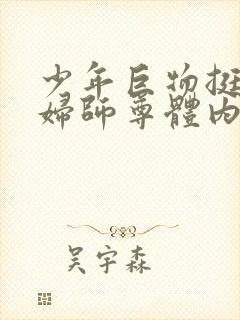 少年巨物挺
婦師尊體內
吴宇森